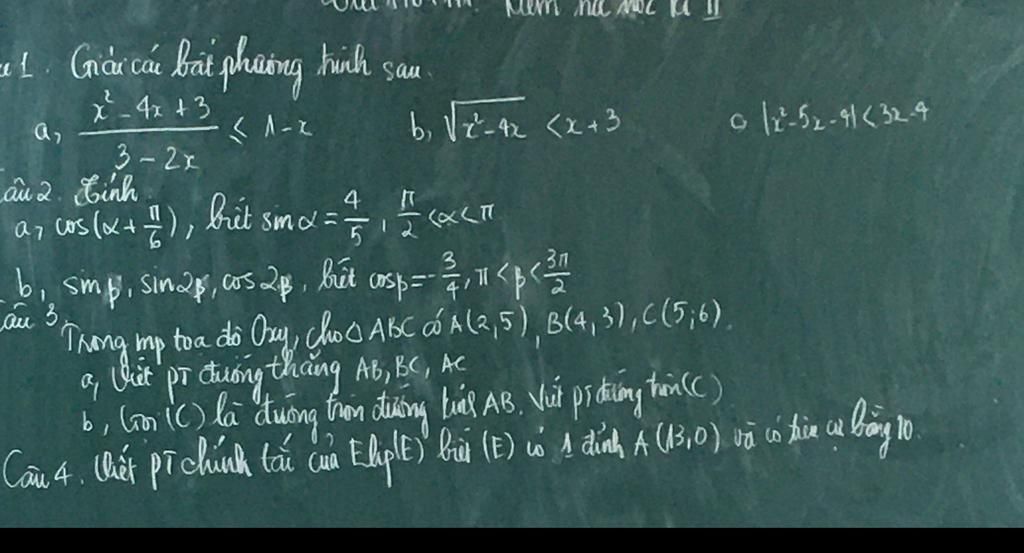 Kiểm tra học kì II
1. Giải các bất phương trình sau.
a, (x² - 4x + 3)/(3 - 2x) ≤ 1 - x b, √(x² - 4x) < x + 3 c |x² - 5x - 4| < 3x - 4
Câu 2. Tính
a, cos(α + π/6), biết sin α = 4/5, π/2 < α < π
b, sin β, sin 2β, cos 2β, biết cos β = -3/4, π < β < 3π/2
Câu 3,
Trong mp toạ độ Oxy, cho Δ ABC có A(2,5), B(4,3), C(5;6).
a, Viết pT đường thẳng AB, BC, AC
b, Gọi (C) là đường tròn đường kính AB. Viết pT đường tròn (C)
Câu 4. Viết pT chính tắc của Elip (E) biết (E) có 1 đỉnh A(13,0) và có tiêu cự bằng 10.